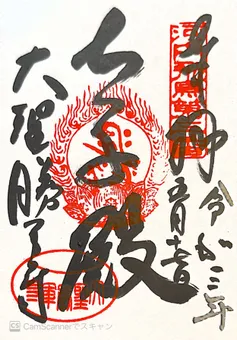 奉拝
令和三年
五月
太子殿
大聖勝軍寺
CS CamScannerでスキャン